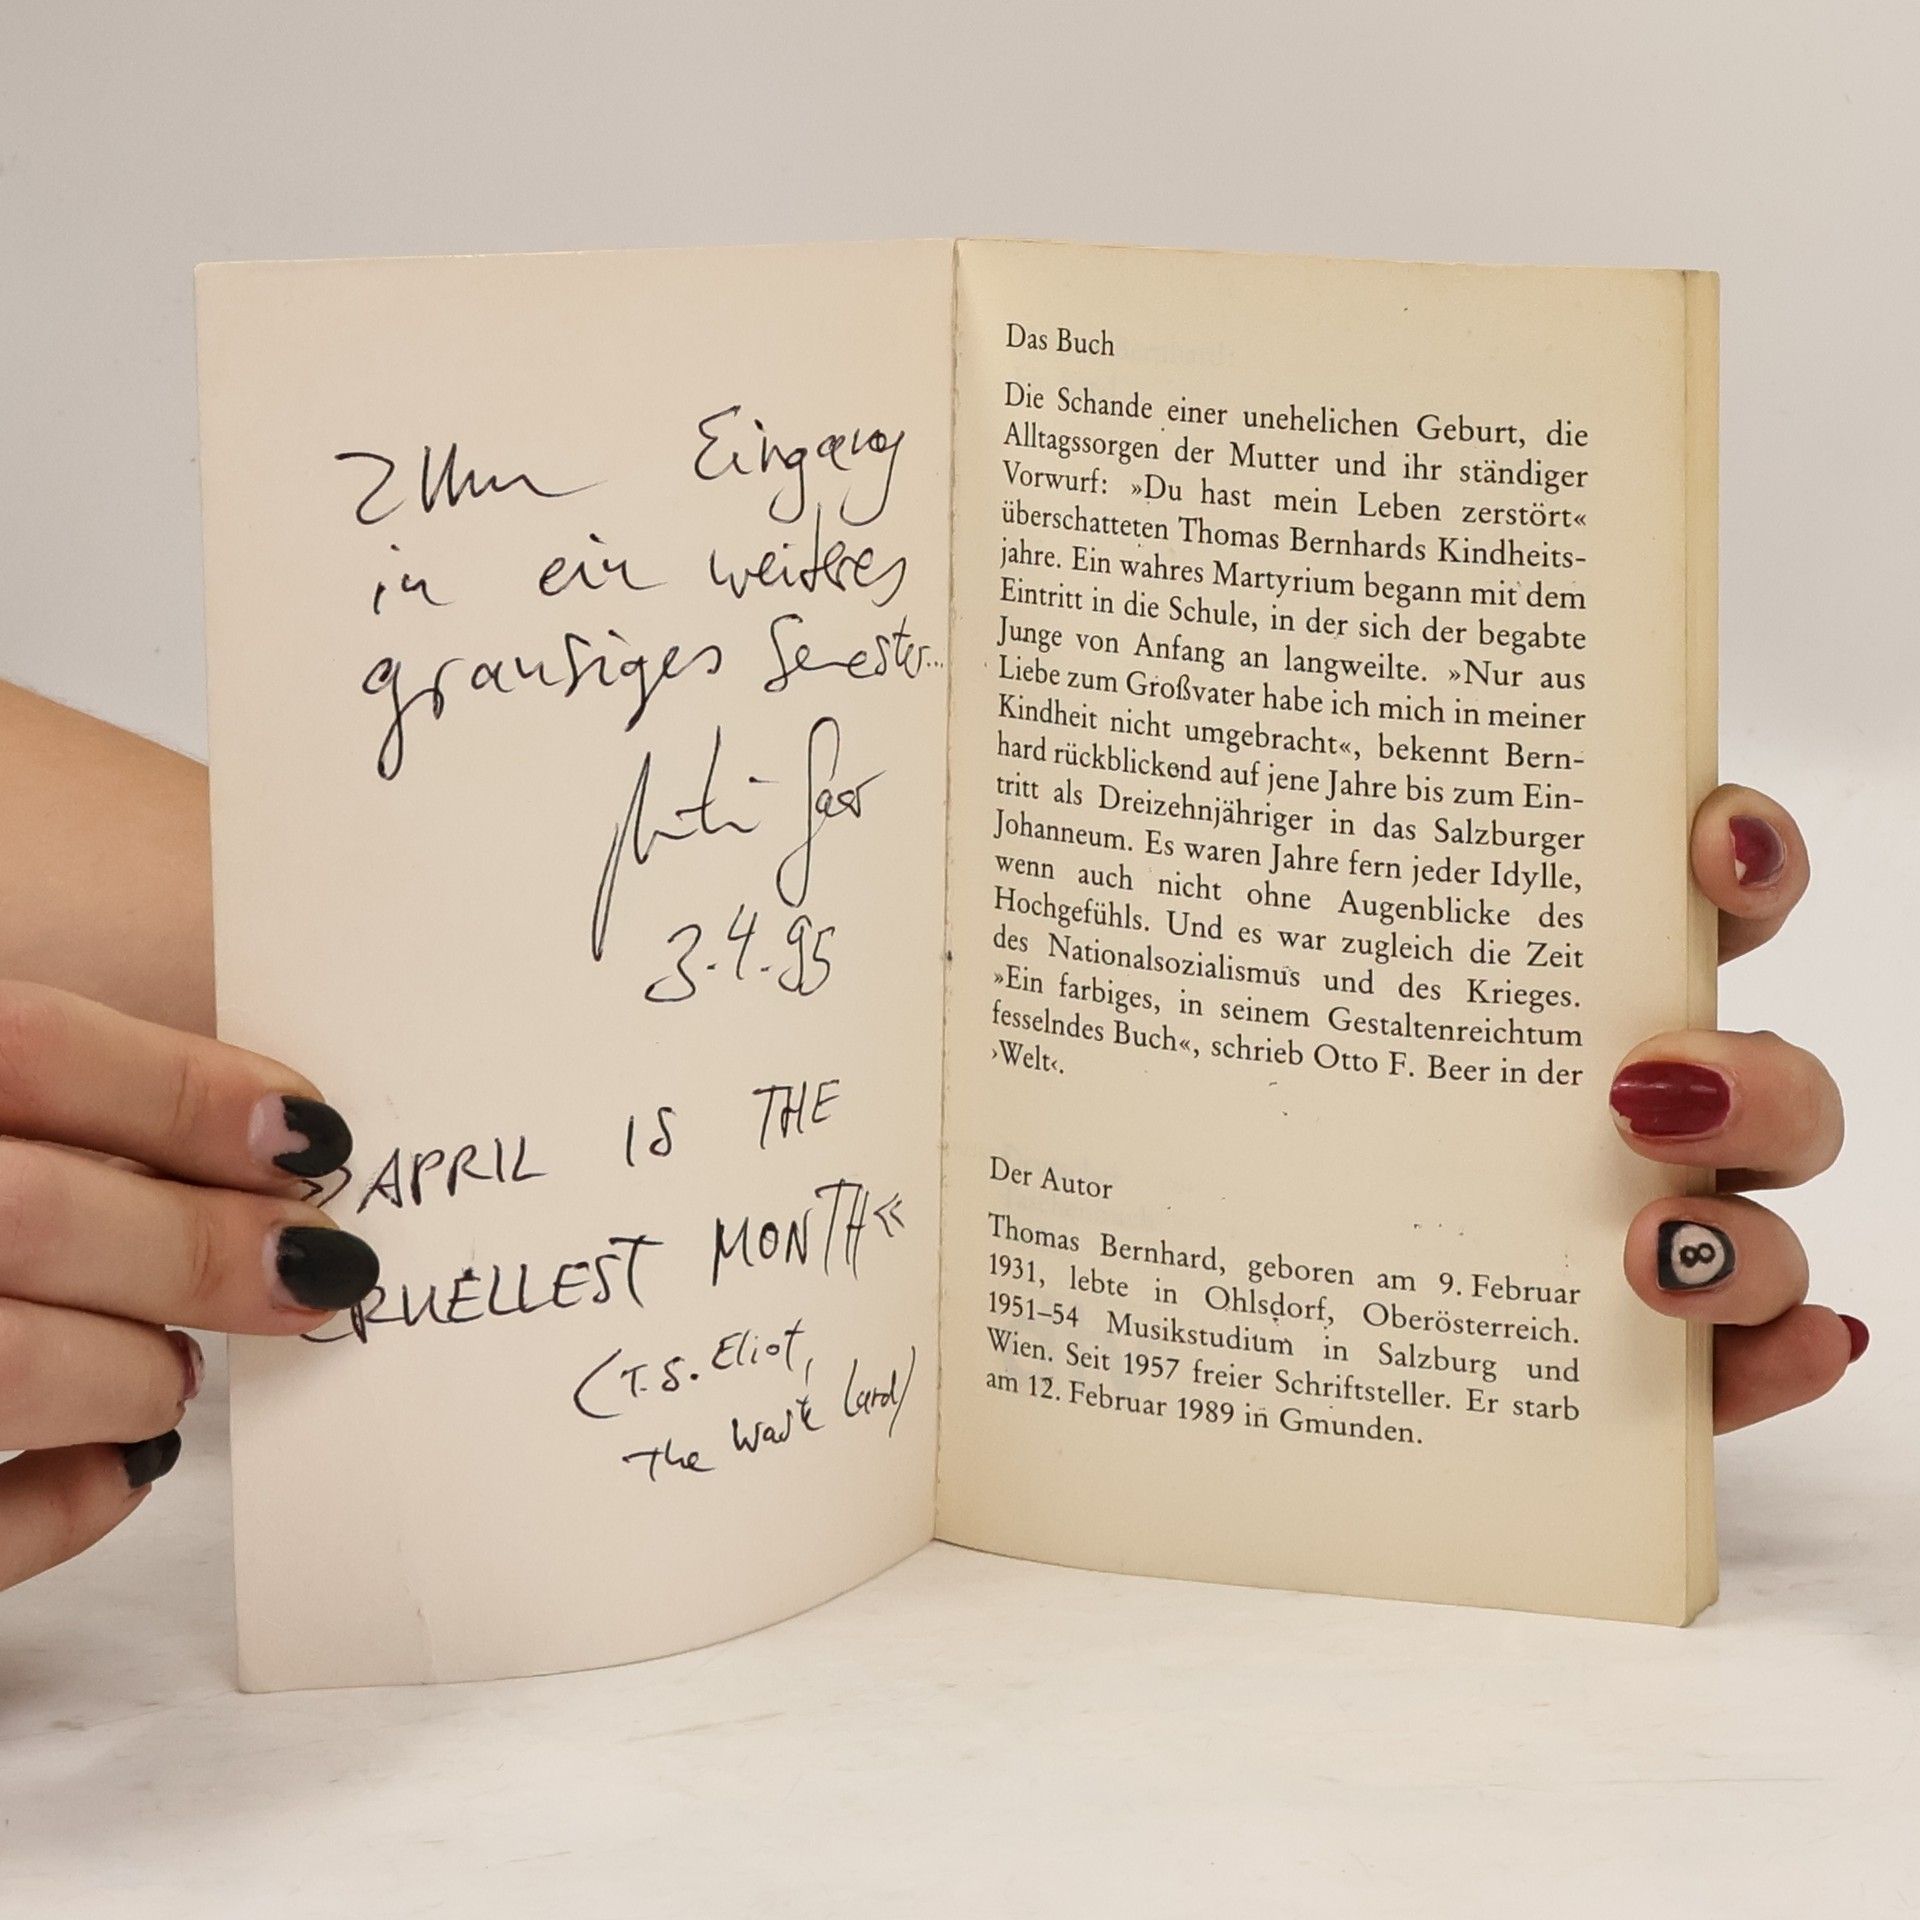 Zum Eingang
in ein weiteres
grausiges Semester...
3.4.95
»APRIL IS THE
CRUELLEST MONTH«
(T.S. Eliot,
The Waste Land)
Das Buch
Die Schande einer unehelichen Geburt, die
Alltagssorgen der Mutter und ihr ständiger
Vorwurf: »Du hast mein Leben zerstört«
überschatteten Thomas Bernhards Kindheits-
jahre. Ein wahres Martyrium begann mit dem
Eintritt in die Schule, in der sich der begabte
Junge von Anfang an langweilte. »Nur aus
Liebe zum Großvater habe ich mich in meiner
Kindheit nicht umgebracht«, bekennt Bern-
hard rückblickend auf jene Jahre bis zum Ein-
tritt als Dreizehnjähriger in das Salzburger
Johanneum. Es waren Jahre fern jeder Idylle,
wenn auch nicht ohne Augenblicke des
Hochgefühls. Und es war zugleich die Zeit
des Nationalsozialismus und des Krieges.
»Ein farbiges, in seinem Gestaltenreichtum
fesselndes Buch«, schrieb Otto F. Beer in der
›Welt‹.
Der Autor
Thomas Bernhard, geboren am 9. Februar
1931, lebte in Ohlsdorf, Oberösterreich.
1951–54 Musikstudium in Salzburg und
Wien. Seit 1957 freier Schriftsteller. Er starb
am 12. Februar 1989 in Gmunden.
8